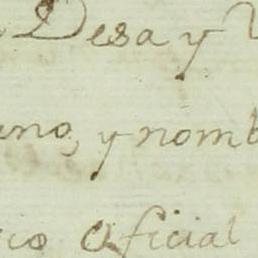 Desa y
no, y nomb
co Oficial